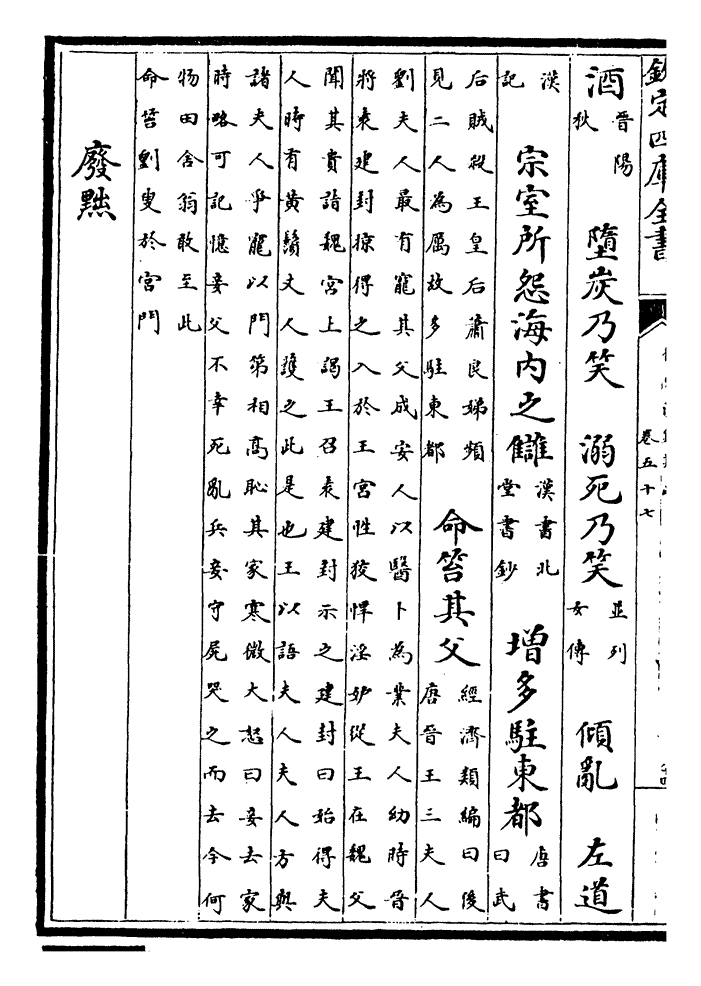 欽定四庫全書
卷五十七
酒 晋陽秋 墮炭乃笑 溺死乃笑 並列女傳 傾亂 左道
漢記 宗室所怨海内之讎 漢書北堂書鈔 增多駐東都 唐書曰武
后賊殺王皇后蕭良娣頻見二人為厲故多駐東都 命笞其父 經濟類編曰後唐晉王三夫人
劉夫人最有寵其父成安人以醫卜為業夫人幼時晉
將袁建封掠得之入於王宮性狡悍淫妒從王在魏父
聞其貴詣魏宮上謁王召袁建封示之建封曰始得夫
人時有黃鬚丈人護之此是也王以語夫人夫人方與
諸夫人爭寵以門第相高恥其家寒微大怒曰妾去家
時略可記憶妾父不幸死亂兵妾守屍哭之而去今何
物田舍翁敢至此
命笞劉叟於宮門
廢黜